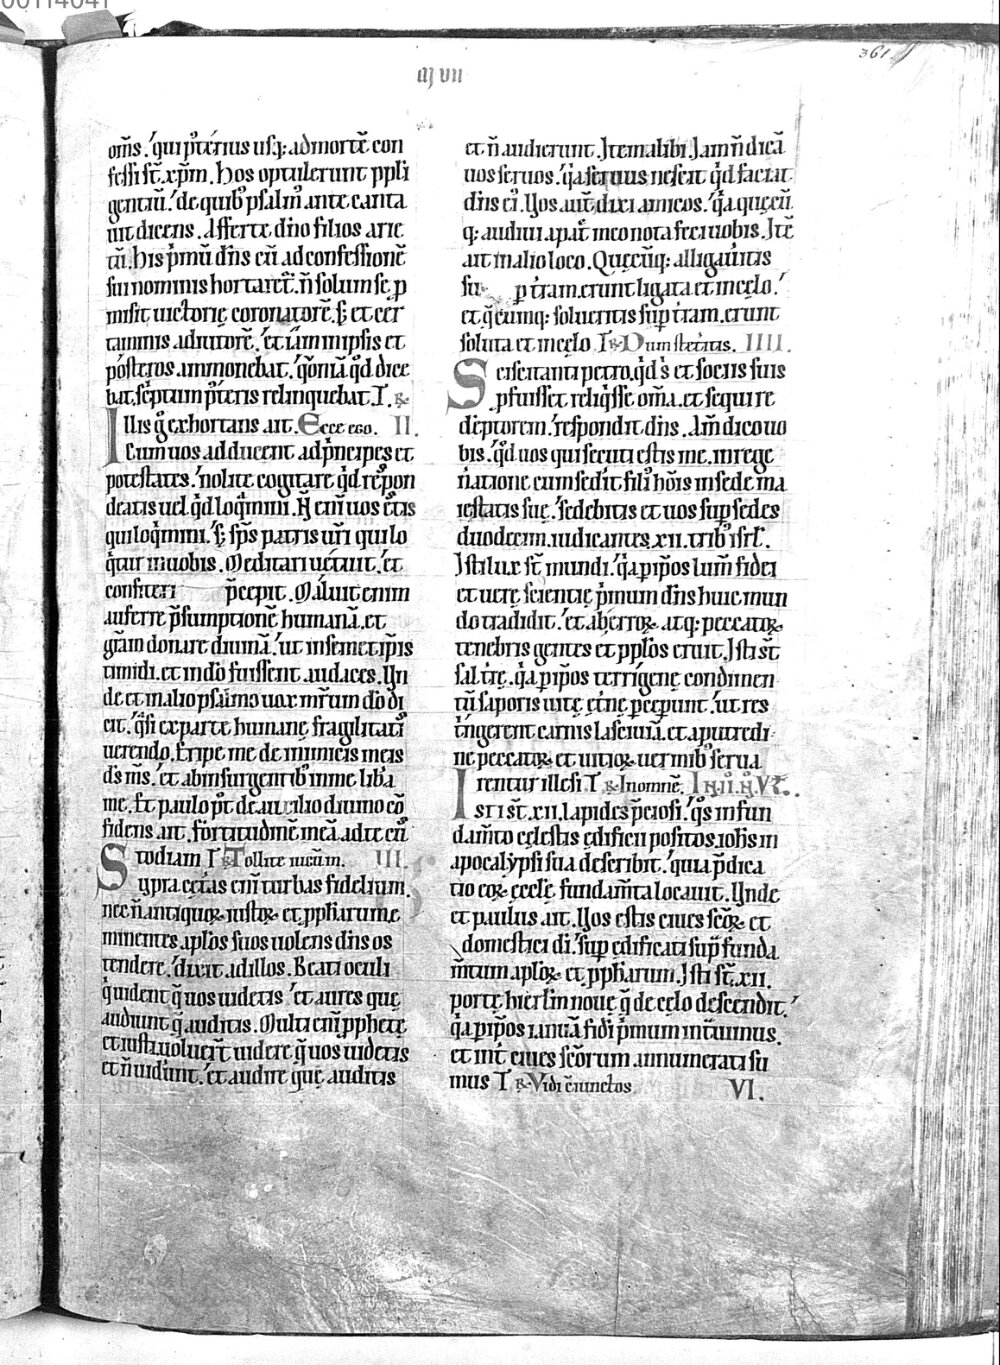 00114041
361
om̄s. qui pꝉterius usq; ad mortē con
fessi sт̄. xp̄m. Hos optulerunt ppl̓i
gentiū. de quibꝰ psalmꝰ ante canta
uit dicens. Afferte dn̄o filios arie
tū. his p̓mū dn̄s cū ad confessionē
sui nominis hortaret̄. n̄ solum se p
misit uictorię coronatorē. s; et cer
taminis adiutorē. et tam in ipsis et
posteros ammonebat. qōniā qd̓ dice
bat. scriptum posteris relinquebat. T. ℞
Illis g̊ exhortans ait. Ecce ego. II.
Cum uos aducent ad p̓ncipes et
potestates. nolite cogitare qd̓ respon
deatis uel qd̓ loq̓mini. N̄ eni uos estis
qui loq̓mini. s; sps̄ patris ur̄i qui lo
q̓tur in uobis. Meditari uetuit. et
confiteri p̄cepit. Maluit enim
auferre p̄sumptionē humanā. et
gr̄am donare diuinā. ut in semet ipsis
timidi. et in dō fuissent audaces. Un
de et in alio psalmo uox mr̄tum dō di
cit. q̓si ex parte humanę fragilitatis
uerendo. Eripe me de inimicis meis
ds̄ ms̄. et ab insurgentibꝰ in me libā
me. Et paulo p̊t de auxilio diuino cō
fidens ait. fortitudinē meā ad te cu
stodiam T ℞ Tollite iugum. III.
Supra cętas eni turbas fidelium.
nec n̄ antiquoꝝ iustoꝝ et ꝓpharum e
minentes aplōs suos uolens dn̄s os
tendere. dixit ad illos. Beati oculi
qui uident q̄ uos uidetis et aures quę
audiunt q̄ auditis. Multi eni ꝓphetę
et iusti uoluer̄t uidere q̄ uos uidetis
et n̄ uider̄unt. et audire quę auditis
et n̄ audierunt. Item alibi. Iam n̄ dicā
uos seruos. q̓a seruus nescit qd̓ faciat
dn̄s eiꝰ. Uos aut̄ dixi amicos. q̓a quęcū
q; audiui a patre meo nota feci uobis. Itē
ait in alio loco. Quęcūq; alligaueritis
su p trām. erunt ligata et in cęlo.
et quecumq; solueritis sup trām. erunt
soluta et in cęlo T ℞ Dum steteritis. IIII.
Sciscitanti petro. qd̓ s̓ et sociis suis
pfuisset reliq̓sse om̄a. et sequi re
dēptorem. respondit dn̄s. Am̄ dico uo
bis. qd̓ uos qui secuti estis me. in rege
n̄atione cum sedit filiꝰ hōis in sede ma
iestatis suę. sedebitis et uos sup sedes
duodecim. iudicantes. xii. tribꝰ isrl̄.
Isti lux sт̄ mundi. q̓a p ip̄os lum̄ fidei
et uerę scientię p̓mum dn̄s huic mun
do tradidit. et ab erroꝝ atq; peccatoꝝ
tenebris gentes et pplōs eruit. Isti sт̄
sal tr̄ę. q̓a p ip̄os terrigenę condimen
tū saporis uitę ęt̄nę pcepunt. ut res
tingerent carnis lasciuiā. et a putredi
ne peccatoꝝ et uitioꝝ uermibꝰ serua
rentur illesi T ℞ In omnē.
Isti sт̄. xii. lapides p̄ciosi. q̓s in fun
dam̄to cęlestis edificii positos. iohis in
apocalypsi sua describit. quia p̄dica
tio eoꝝ ęcclę fundam̄ta locauit. Unde
et paulus ait. Uos estis ciues scōꝝ et
domestici di. sup edificati sup funda
m̄tum aplōꝝ et ꝓpharum. Isti sт̄. xii.
portę hierlm̄ nouę q̄ de cęlo descendit.
q̓a p ip̄os ianuā fidi p̓mum intrauimus.
et int̄ ciues scōrum annumerati su
mus T ℞ Vidi ciunctos. VI.